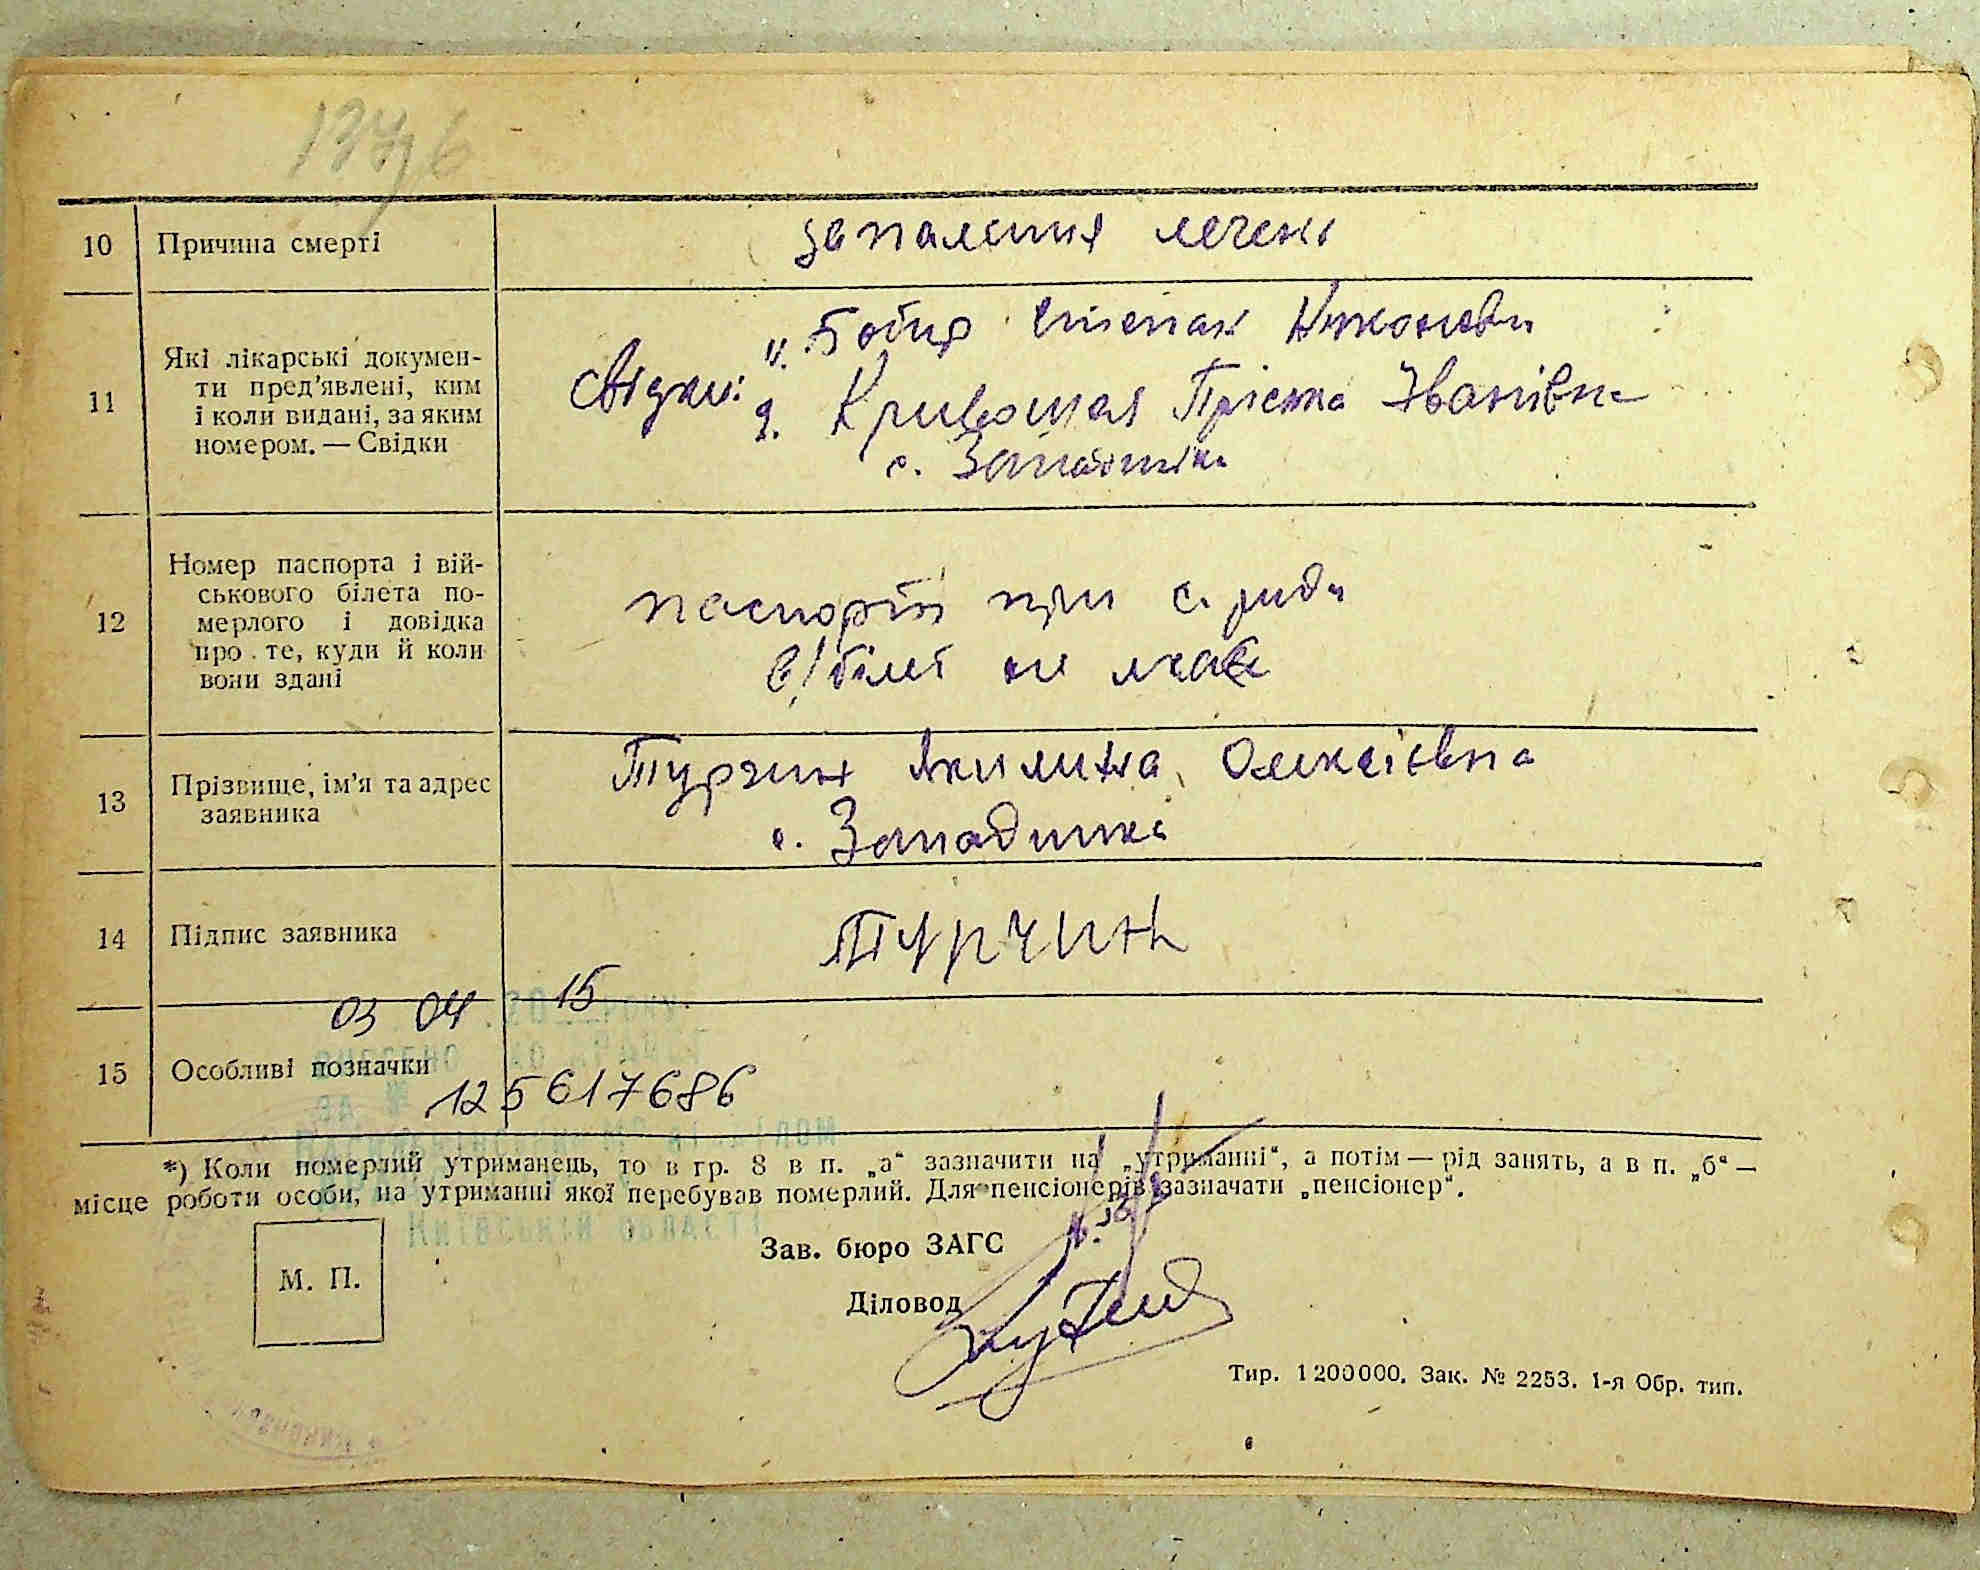 10 Причина смерті
запалення легень
11 Які лікарські докумен-
ти пред’явлені, ким
і коли видані, за яким
номером. — Свідки
Свідки:
Степан
2. Іванівна
с.
12 Номер паспорта і вій-
ськового білета по-
мерлого і довідка
про те, куди й коли
вони здані
паспорт при с. раді
в/білет не має
13 Прізвище, ім’я та адрес
заявника
Турчин Якилина Олексіївна
с. Западинка
14 Підпис заявника
Турчин
03 04 15
15 Особливі позначки
125617686
*) Коли померлий утриманець, то в гр. 8 в п. „а“ зазначити на „утриманні“, а потім — рід занять, а в п. „б“ —
місце роботи особи, на утриманні якої перебував померлий. Для пенсіонерів зазначати „пенсіонер“.
М. П.
Зав. бюро ЗАГС
Діловод
Тир. 1 200 000. Зак. № 2253. 1-я Обр. тип.